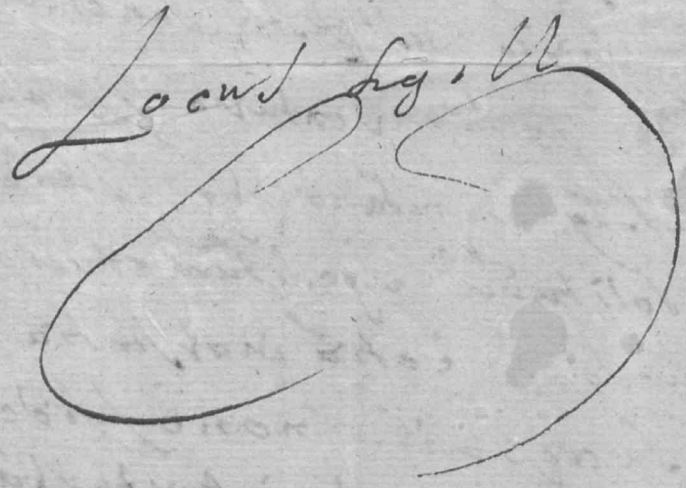 Locus Sigilli